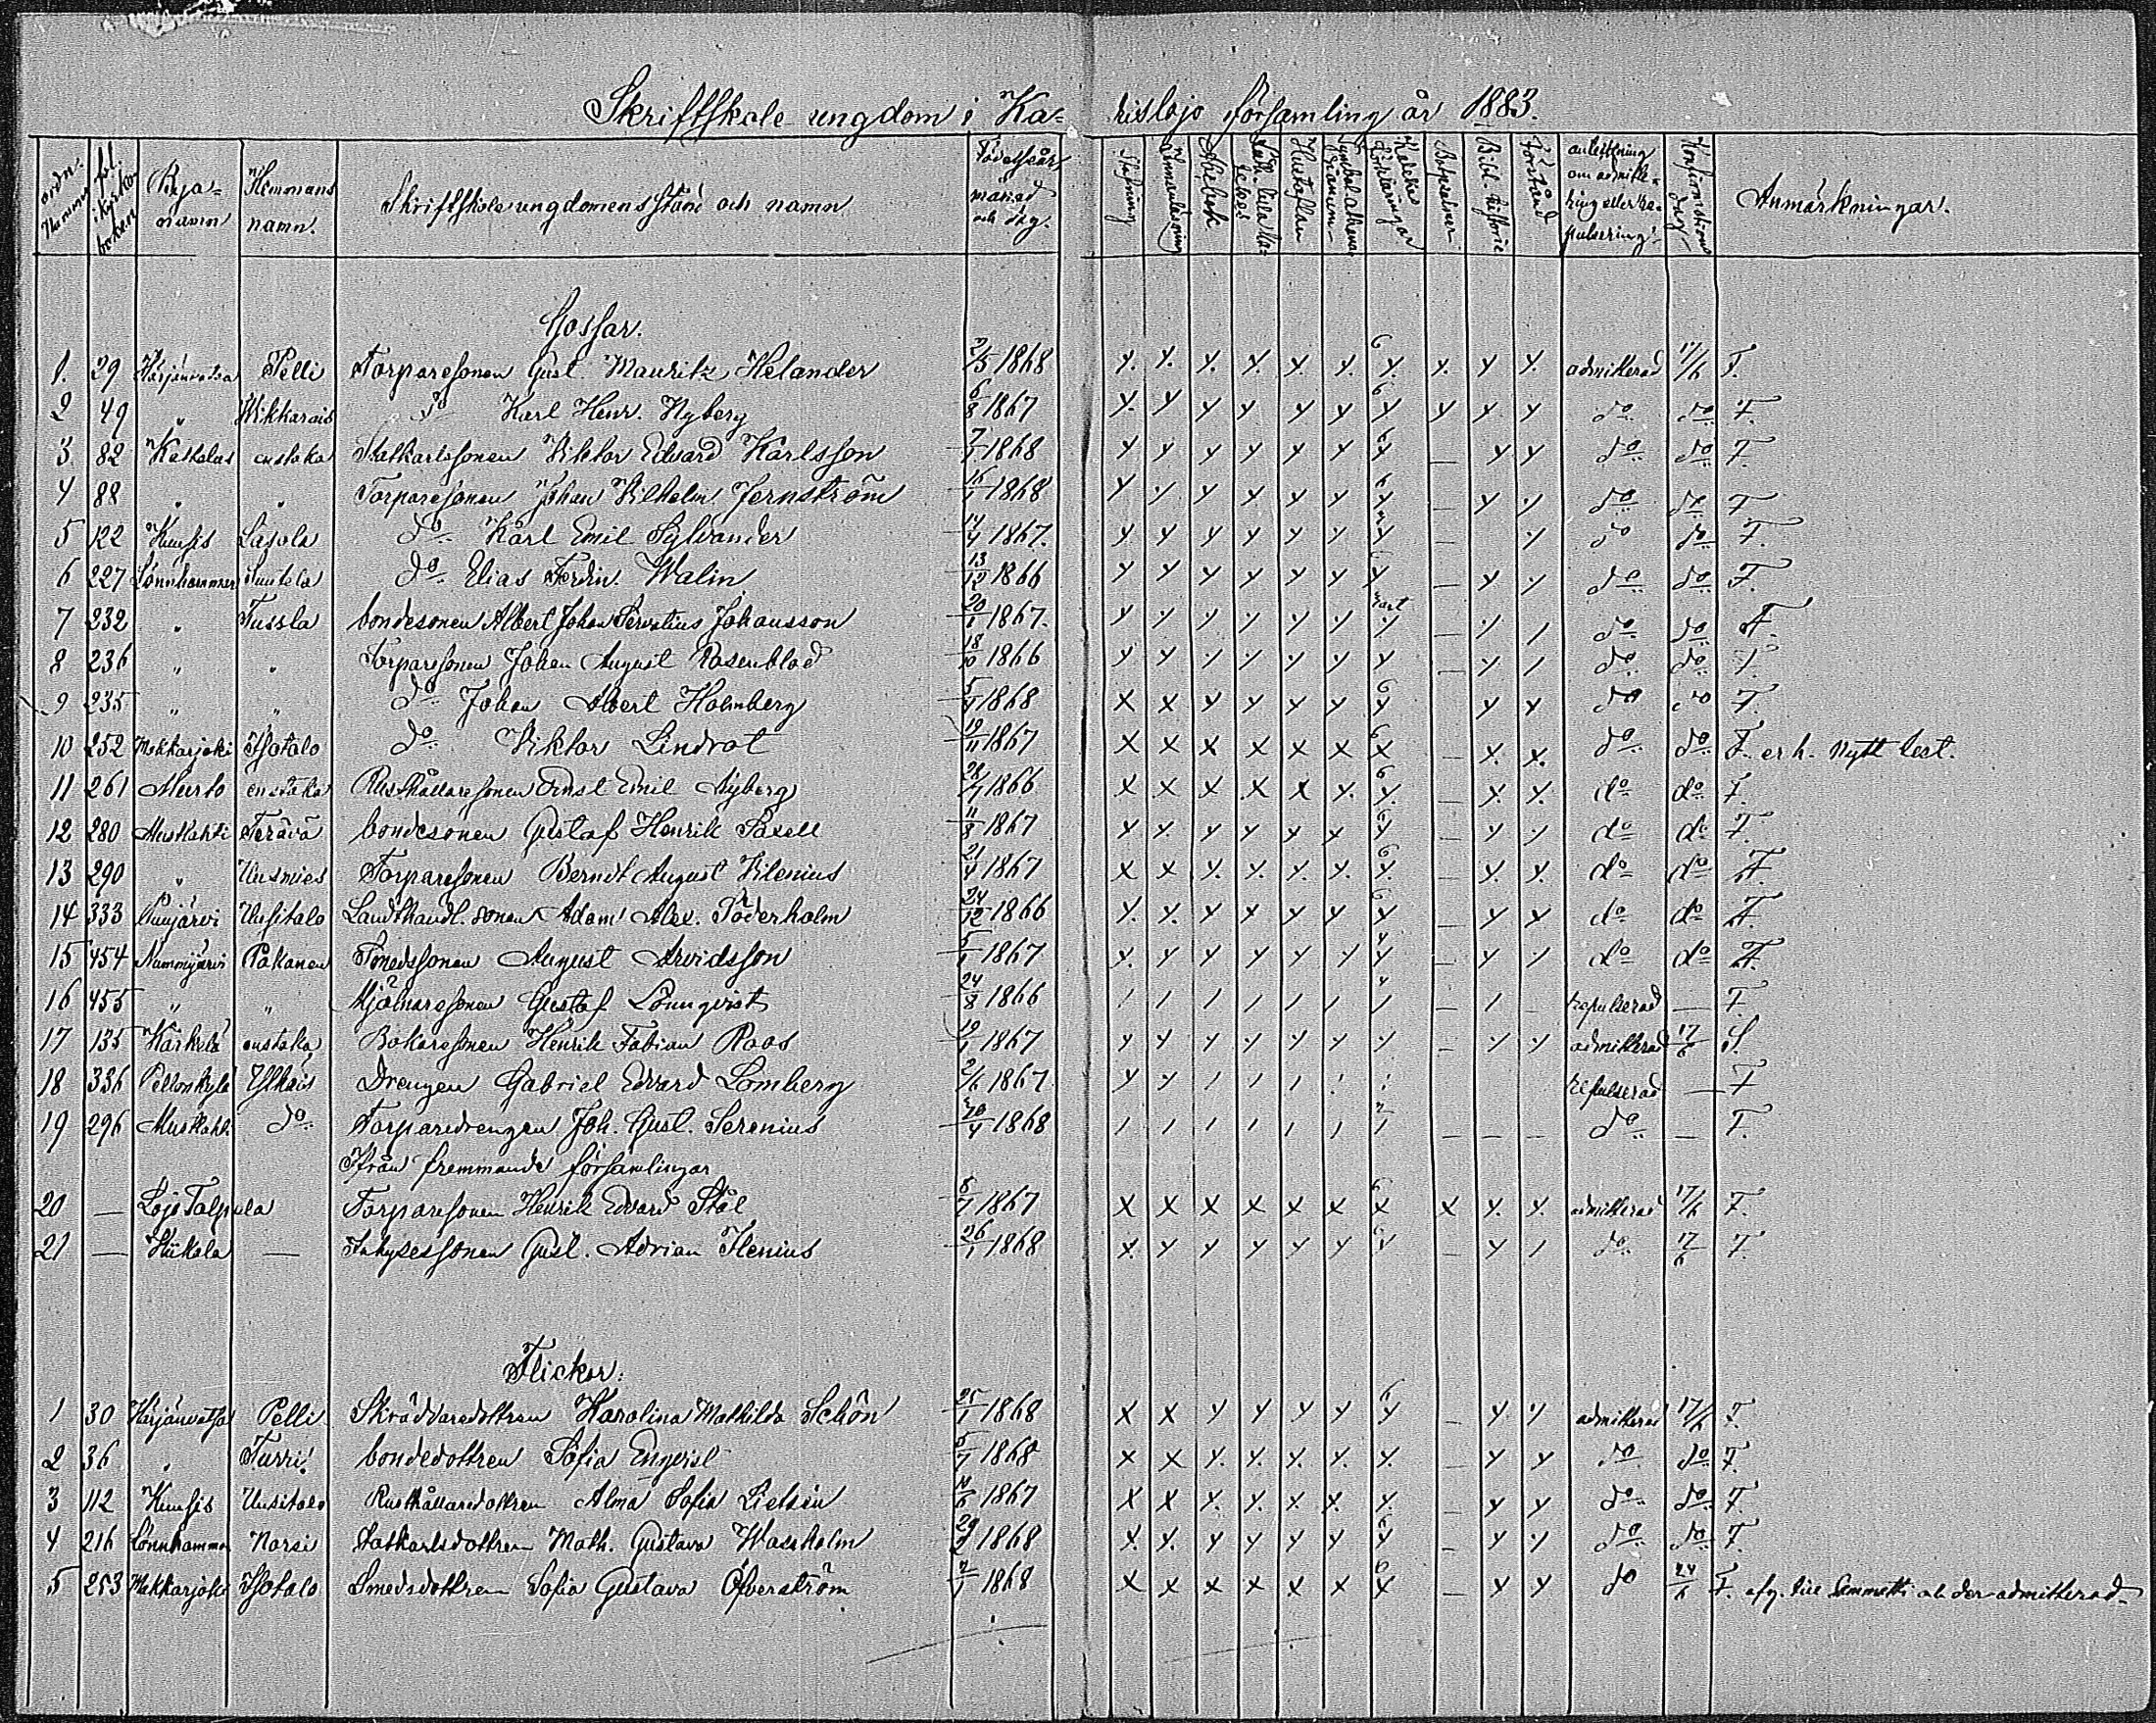 Skriftskole ungdom i Ka= rislojo församling år 1883.
ordn. Nummer fol. i kyrko boken Bya= namn Hemmans namn. Skriftskole ungdomens stånd och namn Födelseår, månad och dag. Stafning Innanläsning Abcbok Luth. lilla ka= teches Hustaflan Symbol. athana= sianum Kateches förklaringar Botpsalmer Bibl. historie Förstånd anteckning om admitte= ring eller re= pulsering. Konfirmations dag Anmärkningar.
Gossar.
1. 29 Härjänvatsa Pelli Torparesonen Gust. Mauritz Helander 2/5 1868 y. y. y. y. y. y. 6 y. y. y y. admitterad 17/6 F.
2 49 " Wikkarais do Karl Henr. Nyberg 6/8 1867 y. y y y y y 6 y y y y do do F
3 82 Kaskolas enstaka Statkarlssonen Viktor Edvard Karlsson 7/1 1868 y y y y y y 6 y — y y do do F
4 88 " " Torparesonen Johan Vilhelm Jernström 16/1 1868 y y y y y y 6 y — y y do do F
5 122 Kuusis Lasola do Karl Emil Sylvander 14/4 1867. y y y y y y y y do do F.
6 227 Lönnhammar Suutela do Elias Ferdin. Walin 13/12 1866 y y y y y y y — y y do do F.
7 232 " Tussla bondesonen Albert Johan Servatius Johansson 20/1 1867. y y y y y y y — y / do do F.
8 236 " " Torparesonen Johan August Rosenblad 18/10 1866 y y y y y y y — y / do do F.
9 235 " " do Johan Albert Holmberg 5/4 1868 x x y y y y 6 y y y do do F.
10 252 Makkarjoki Isotalo do Viktor Lindrot 19/11 1867 x x x x x x 6 x — x. x. do do F. er h. nytt test.
11 261 Murto enstaka Rusthållaresonen Ernst Emil Nyberg 28/7 1866 x x x x x y. 6 y. — y. y. do do F.
12 280 Mustlahti Terävä bondesonen Gustaf Henrik Saxell 11/8 1867 y y. y y y y 6 y — y y do do F.
13 290 " Uusmies Torparesonen Berndt August Vilenius 21/4 1867 x x y. y. y. y. 6 y. — y. y. do do F.
14 333 Puujärvi Uusitalo Landthandl. sonen Adam Alex. Söderholm 24/12 1866 y. y. y y y y 6 y — y y do do F.
15 454 Nummijärvi Pakanen Smedssonen August Arvidsson 5/1 1867 y. y y y y y 4 y — y y do do F.
16 455 " " Mjölnaresonen Gustaf Lönnqvist 24/8 1866 / / / / / / 4 / — / repulserad — F.
17 135 Kärkelä enstaka Bokaresonen Henrik Fabian Roos 19/1 1867 y y y y y y y — y y admitterad 17/6 S.
18 336 Pellonkylä Ylhäis Drengen Gabriel Edvard Lomberg 2/6 1867 y y / / / / / repulserad — F
19 296 Mustlaht. do Torparedrengen Joh. Gust. Serenius 20/4 1868 / / / / / / 2 / — — — do — F.
Ifrån fremmande församlingar
20 — Lojo Talpela Torparesonen Henrik Edvard Stål 8/7 1867 x x x x x x 6 x x y. y. admitterad 17/6 F.
21 — Kiikala — Inhysessonen Gust. Adrian Ilenius 26/1 1868 x. y y y y y 6 y — y / do 17/6 F.
Flickor.
1 30 Härjänvatsa Pelli Skräddaredottren Karolina Mathilda Schön 25/1 1868 x x y y y y 6 y — y y admitterad 17/6 F.
2 36 " Turri bondedottren Sofia Engvist 5/7 1868 x x y. y. y. y. y. — y y do do F.
3 112 Kuusis Uusitalo Rusthållaredottren Alma Sofia Lietzén 11/6 1867 x x y. y. x. x. y. — y y do do F.
4 216 Lönnhammar Narsi Statkarlsdottren Math. Gustava Waseholm 29/2 1868 y. y. y y y y 6 y — y y do do F.
5 253 Makkarjoki Isotalo Smedsdottren Sofia Gustava Öfverström 2/1 1868 x x x x x x 6 x — x x do 24/6 F. afg. till Sammatti och der admitterad.